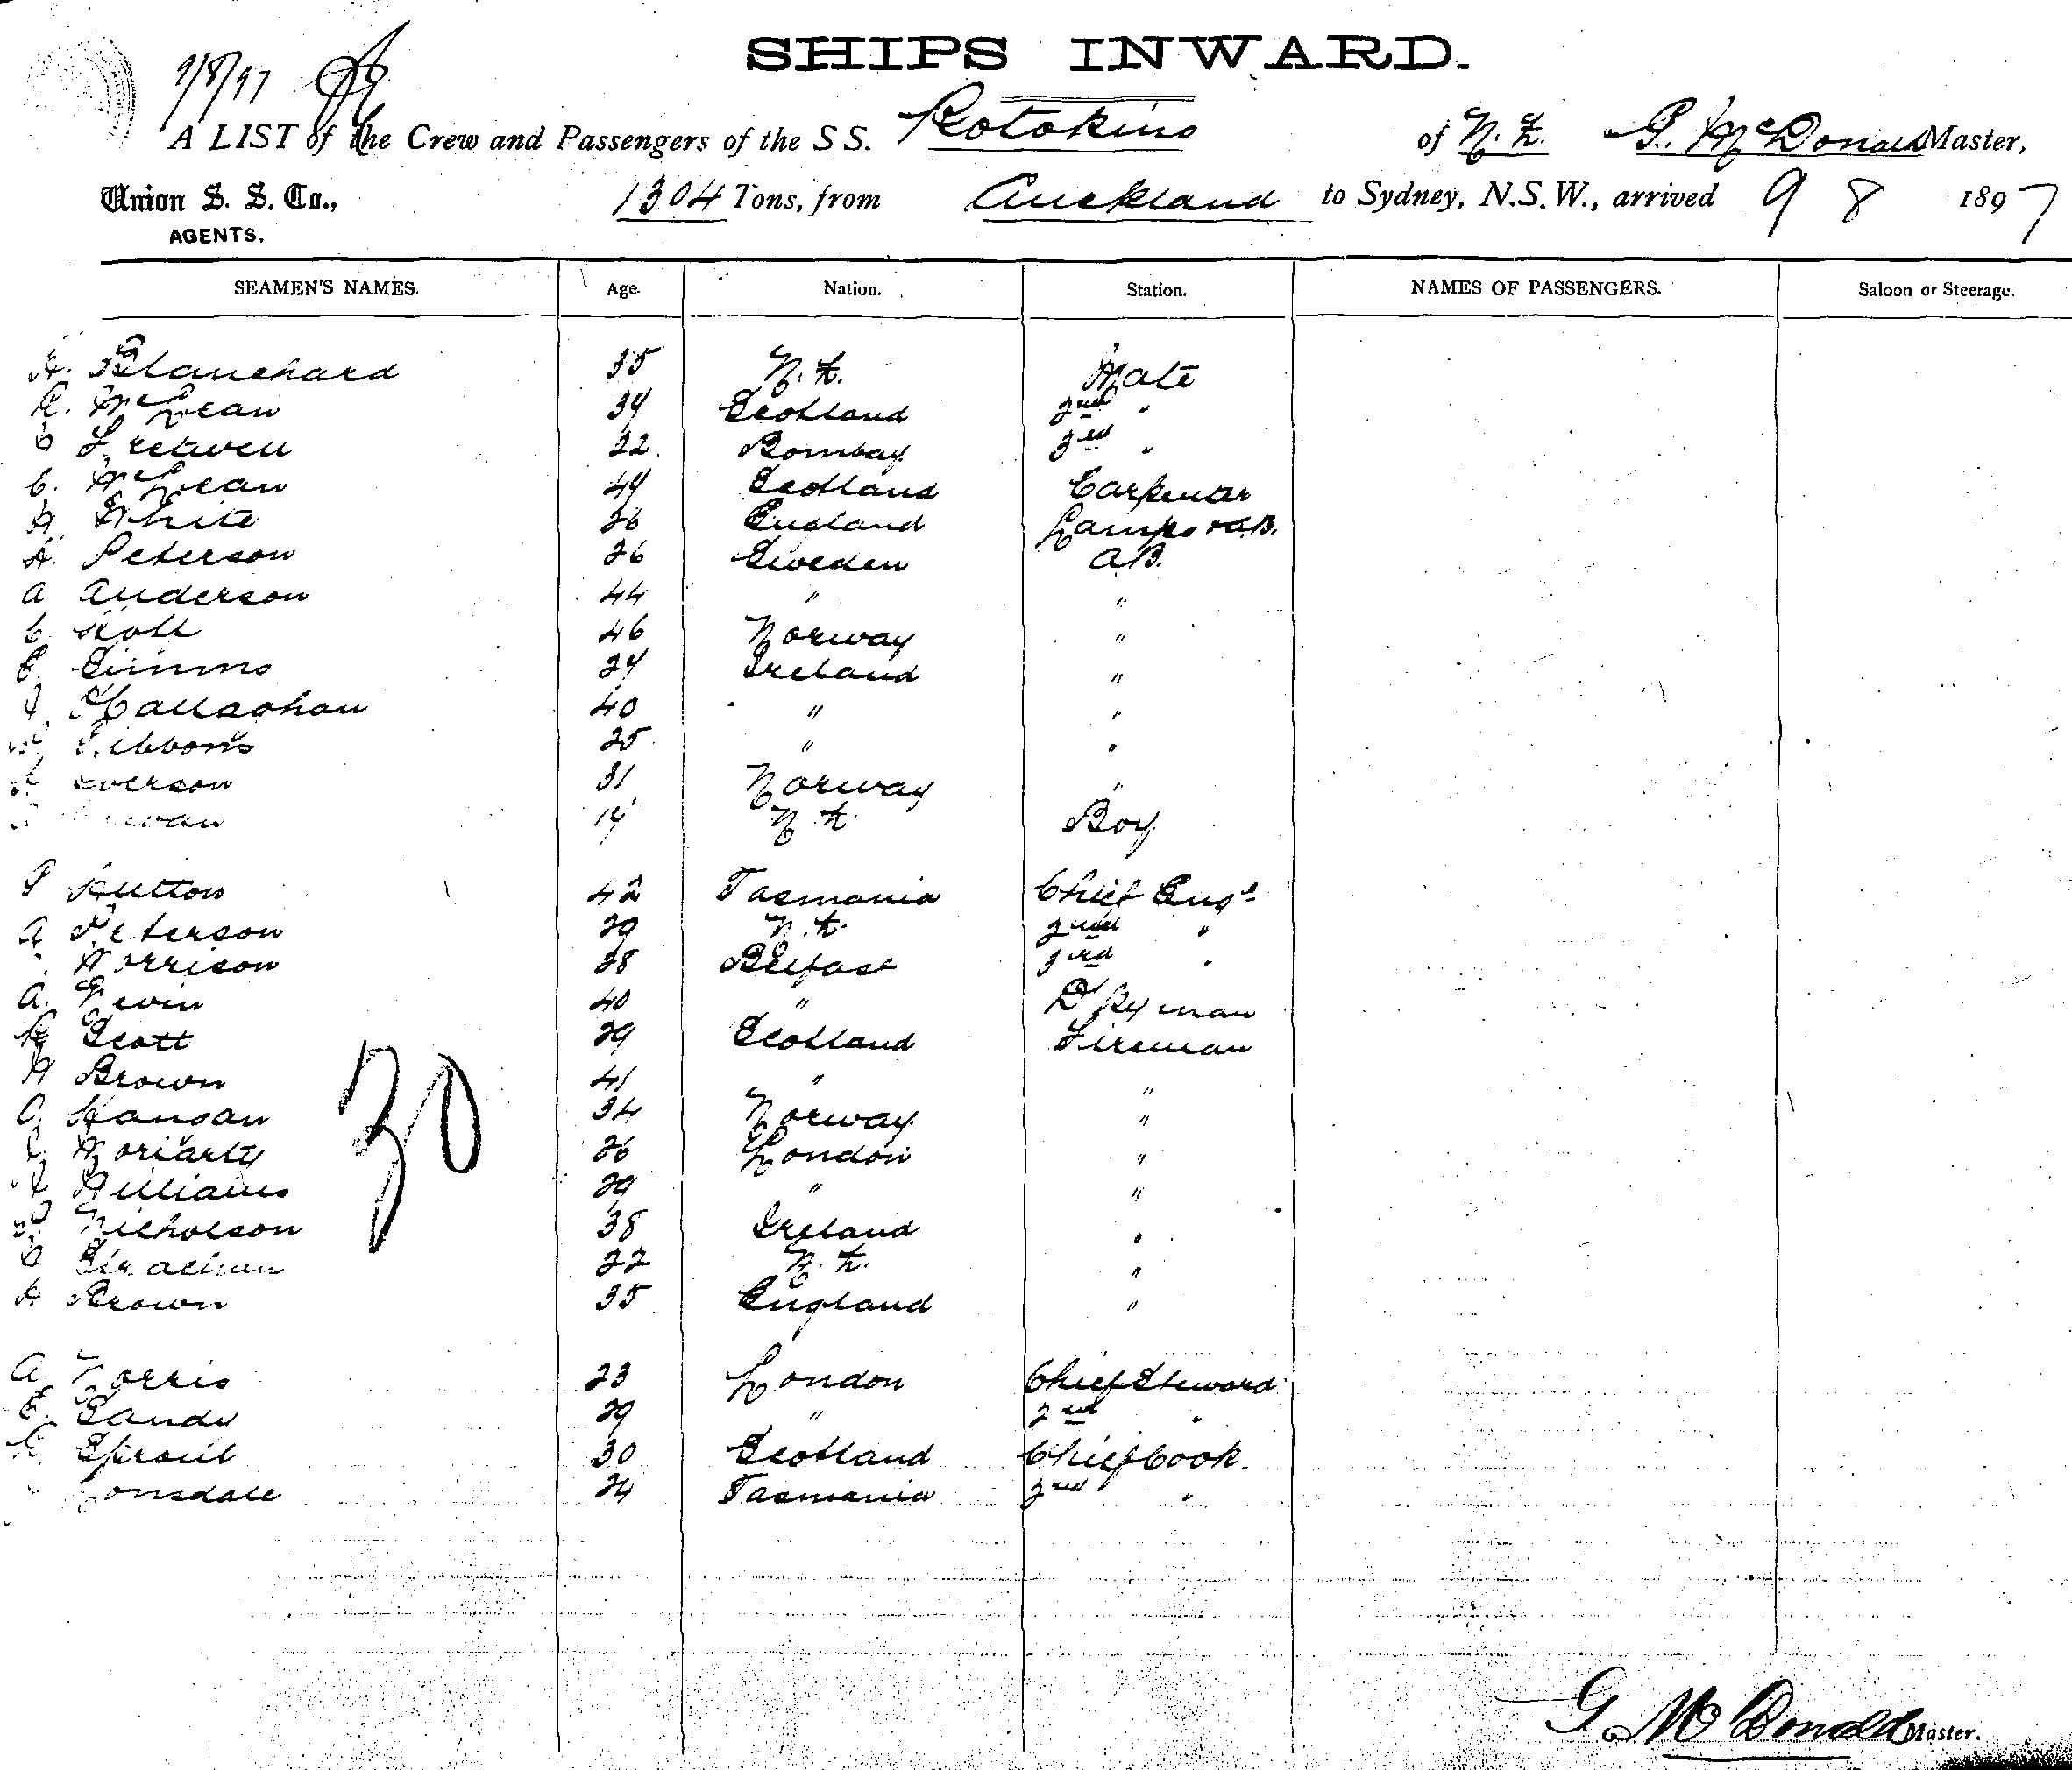 SHIPS INWARD.
9/8/97
A LIST of the Crew and Passengers of the SS. Rotokino of N. Z. G. McDonald Master,
Union S. S. Co., 1304 Tons, from Auckland to Sydney, N.S.W., arrived 9 8 1897
AGENTS.
SEAMEN'S NAMES. Age. Nation. Station. NAMES OF PASSENGERS. Saloon or Steerage.
Blanchard 35 N. Z. Mate
McLean 34 Scotland 2nd "
Fretwell 22 Bombay 3rd "
C. McLean 44 Scotland Carpenter
White 26 England Lamps & A.B.
A. Peterson 26 Sweden A.B.
A Anderson 44 " "
46 Norway "
E. Simms 24 Ireland "
Callaghan 40 " "
Gibbons 25 " "
Everson 31 Norway "
14 N. Z. Boy
Hutton 42 Tasmania Chief Engr
A Peterson 29 N. Z. 2nd "
Morrison 28 Belfast 3rd "
A. Nevin 40 " Dkyman
Scott 29 Scotland Fireman
Brown 41 " "
O. Hansan 34 Norway "
Moriarty 26 London "
Williams 29 " "
Nicholson 38 Ireland "
Strachan 22 N. Z. "
Brown 35 England "
30
A. Norris 23 London Chief Steward
E. Sandy 29 " 2nd "
Sproul 30 Scotland Chief Cook
Lonsdale 24 Tasmania 2nd "
G McDonald Master.